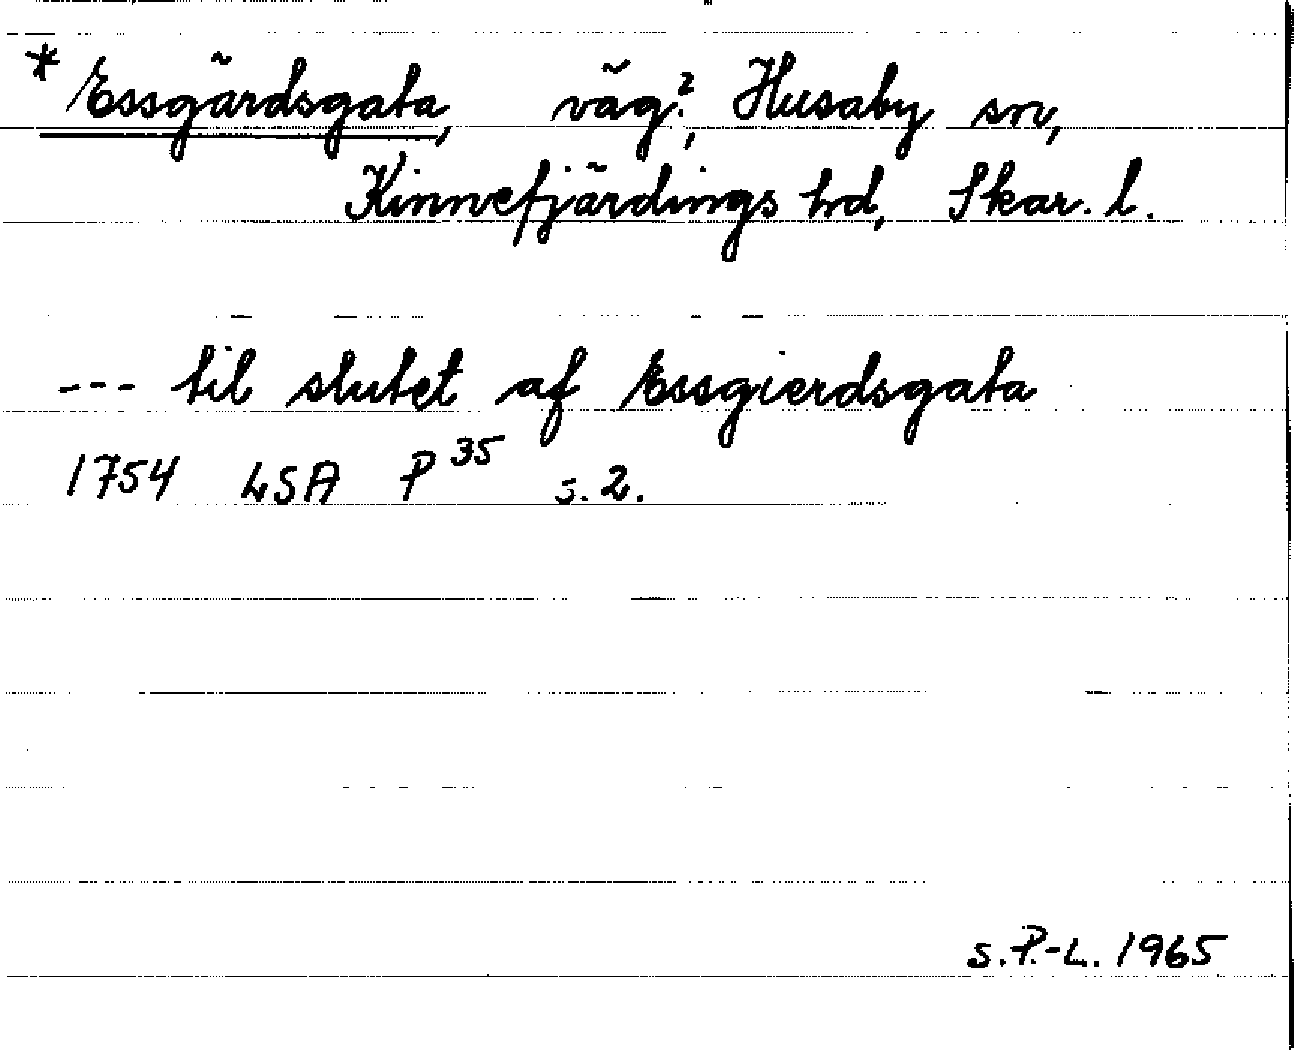 * Essgärdsgata, väg?, Husaby sn,
Kinnefjärdings hd, Skar. l.
--- til slutet af Essgierdsgata
1754 LSA P 35 s. 2.
S. P.-L. 1965